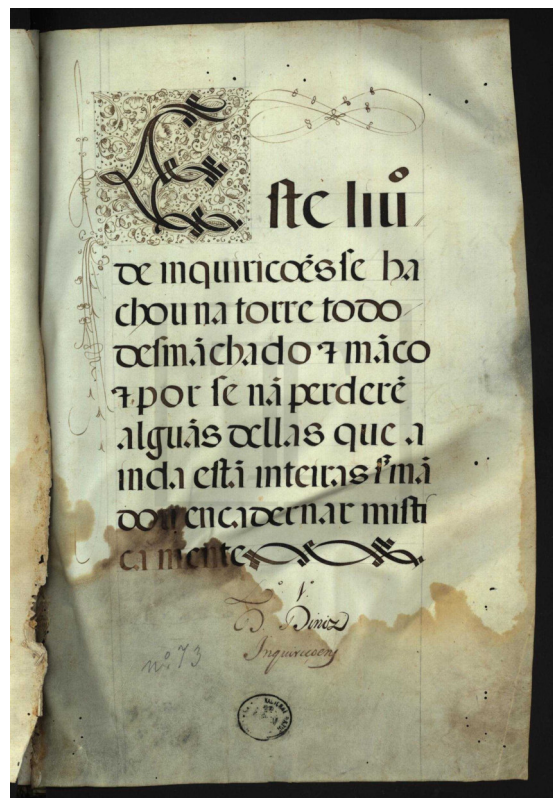 Este liuº
de inquiricoẽs se ha
chou na torre todo
desmãchado ⁊ mãco
⁊ por se nã perderẽ
alguãs dellas que a
inda estã inteiras se mã
dou encadernar misti
camente
D. Diniz
Inquiricoens
nº 73